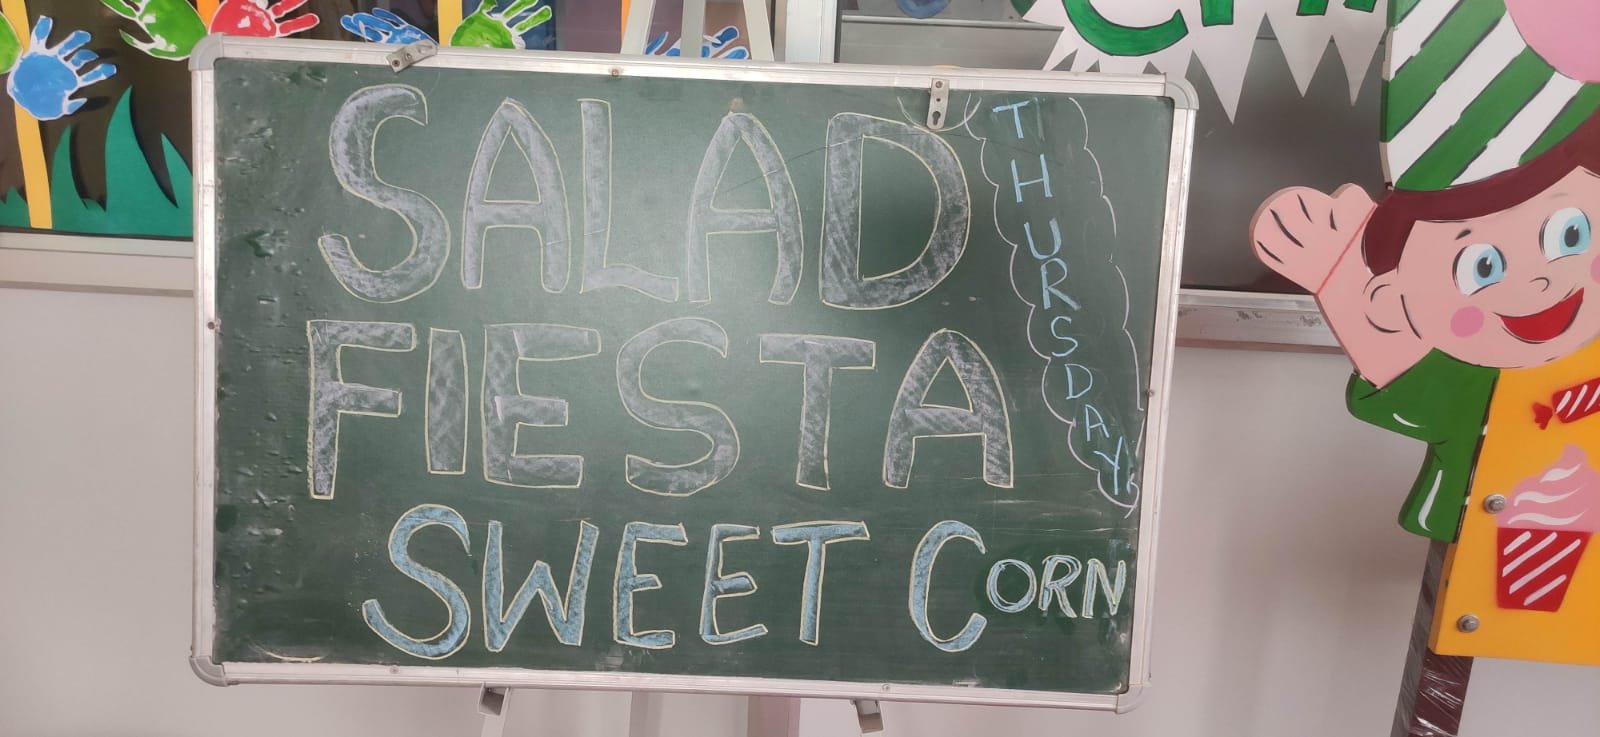 SALAD
FIESTA
SWEET CORN
THURSDAY